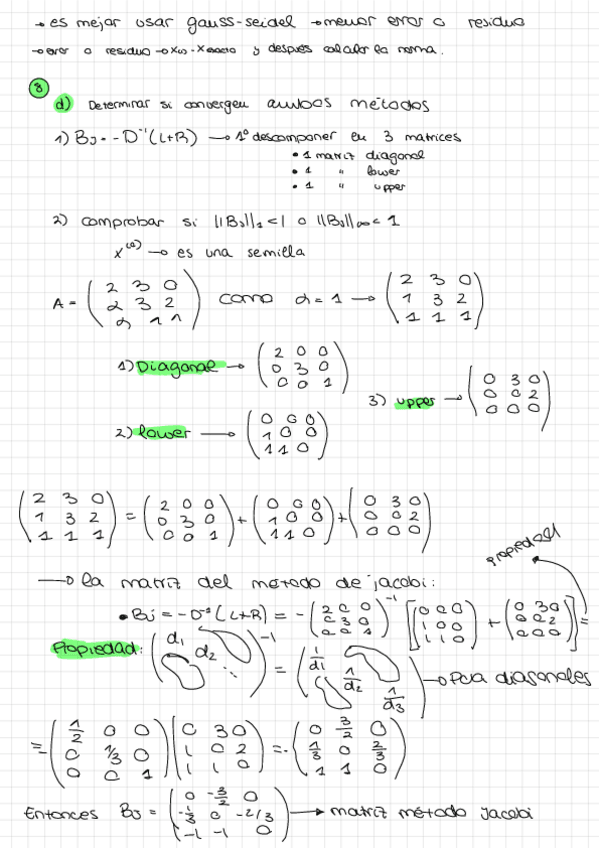 → es mejor usar gauss-seidel → menor error o residuo
→ error o residuo → x₍ₖ₎ - x exacto y después calcular la norma.
8
d) Determinar si convergen ambos métodos
1) BJ = -D⁻¹(L+R) → 1º descomponer en 3 matrices
• 1 matriz diagonal
• 1 " lower
• 1 " upper
2) comprobar si ||BJ||₁ < 1 o ||BJ||∞ < 1
x⁽⁰⁾ → es una semilla
A = (2 3 0; α 3 2; α 1 1) como α = 1 → (2 3 0; 1 3 2; 1 1 1)
1) Diagonal → (2 0 0; 0 3 0; 0 0 1)
3) upper → (0 3 0; 0 0 2; 0 0 0)
2) lower → (0 0 0; 1 0 0; 1 1 0)
(2 3 0; 1 3 2; 1 1 1) = (2 0 0; 0 3 0; 0 0 1) + (0 0 0; 1 0 0; 1 1 0) + (0 3 0; 0 0 2; 0 0 0)
propiedad
→ la matriz del método de jacobi:
• BJ = -D⁻¹(L+R) = -(2 0 0; 0 3 0; 0 0 1)⁻¹ [(0 0 0; 1 0 0; 1 1 0) + (0 3 0; 0 0 2; 0 0 0)] =
Propiedad: (d₁ d₂ ⋱)⁻¹ = (1/d₁ 1/d₂ 1/d₃) → Para diagonales
= -(1/2 0 0; 0 1/3 0; 0 0 1)(0 3 0; 1 0 2; 1 1 0) = -(0 3/2 0; 1/3 0 2/3; 1 1 0)
Entonces BJ = (0 -3/2 0; -1/3 0 -2/3; -1 -1 0) → matriz método jacobi